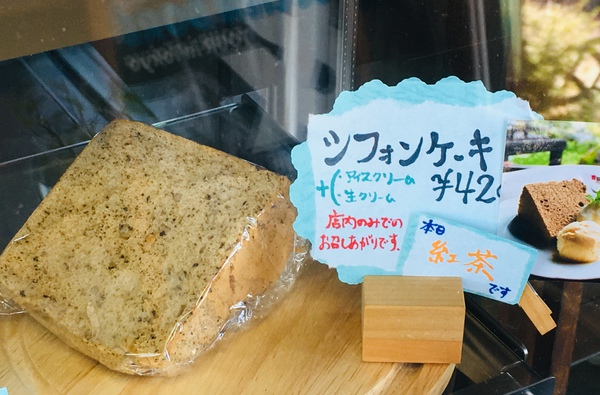 シフォンケーキ
+(・アイスクリーム
・生クリーム
¥42
店内のみでの
お召しあがりです。
本日
紅茶
です